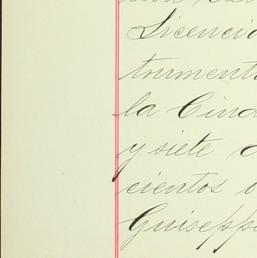 Licencio
trument
la Ciud
y siete d
cientos o
Guisepp